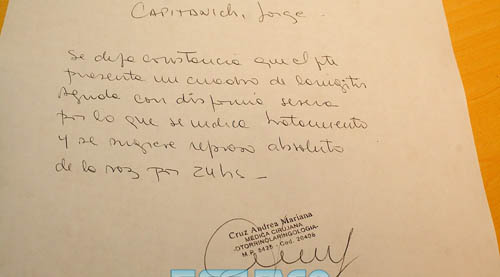 CAPITANICH, Jorge.
Se deja constancia que el pte
presenta un cuadro de laringitis
aguda con disfonia severa
por lo que se indica tratamiento
y se sugiere reposo absoluto
de la voz por 24hs _
Cruz Andrea Mariana
MEDICA CIRUJANA
-OTORRINOLARINGOLOGIA-
M.P. 5425 - Cod. 20406